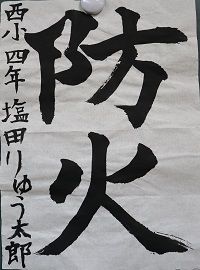 防火
西小四年塩田りゅう太郎